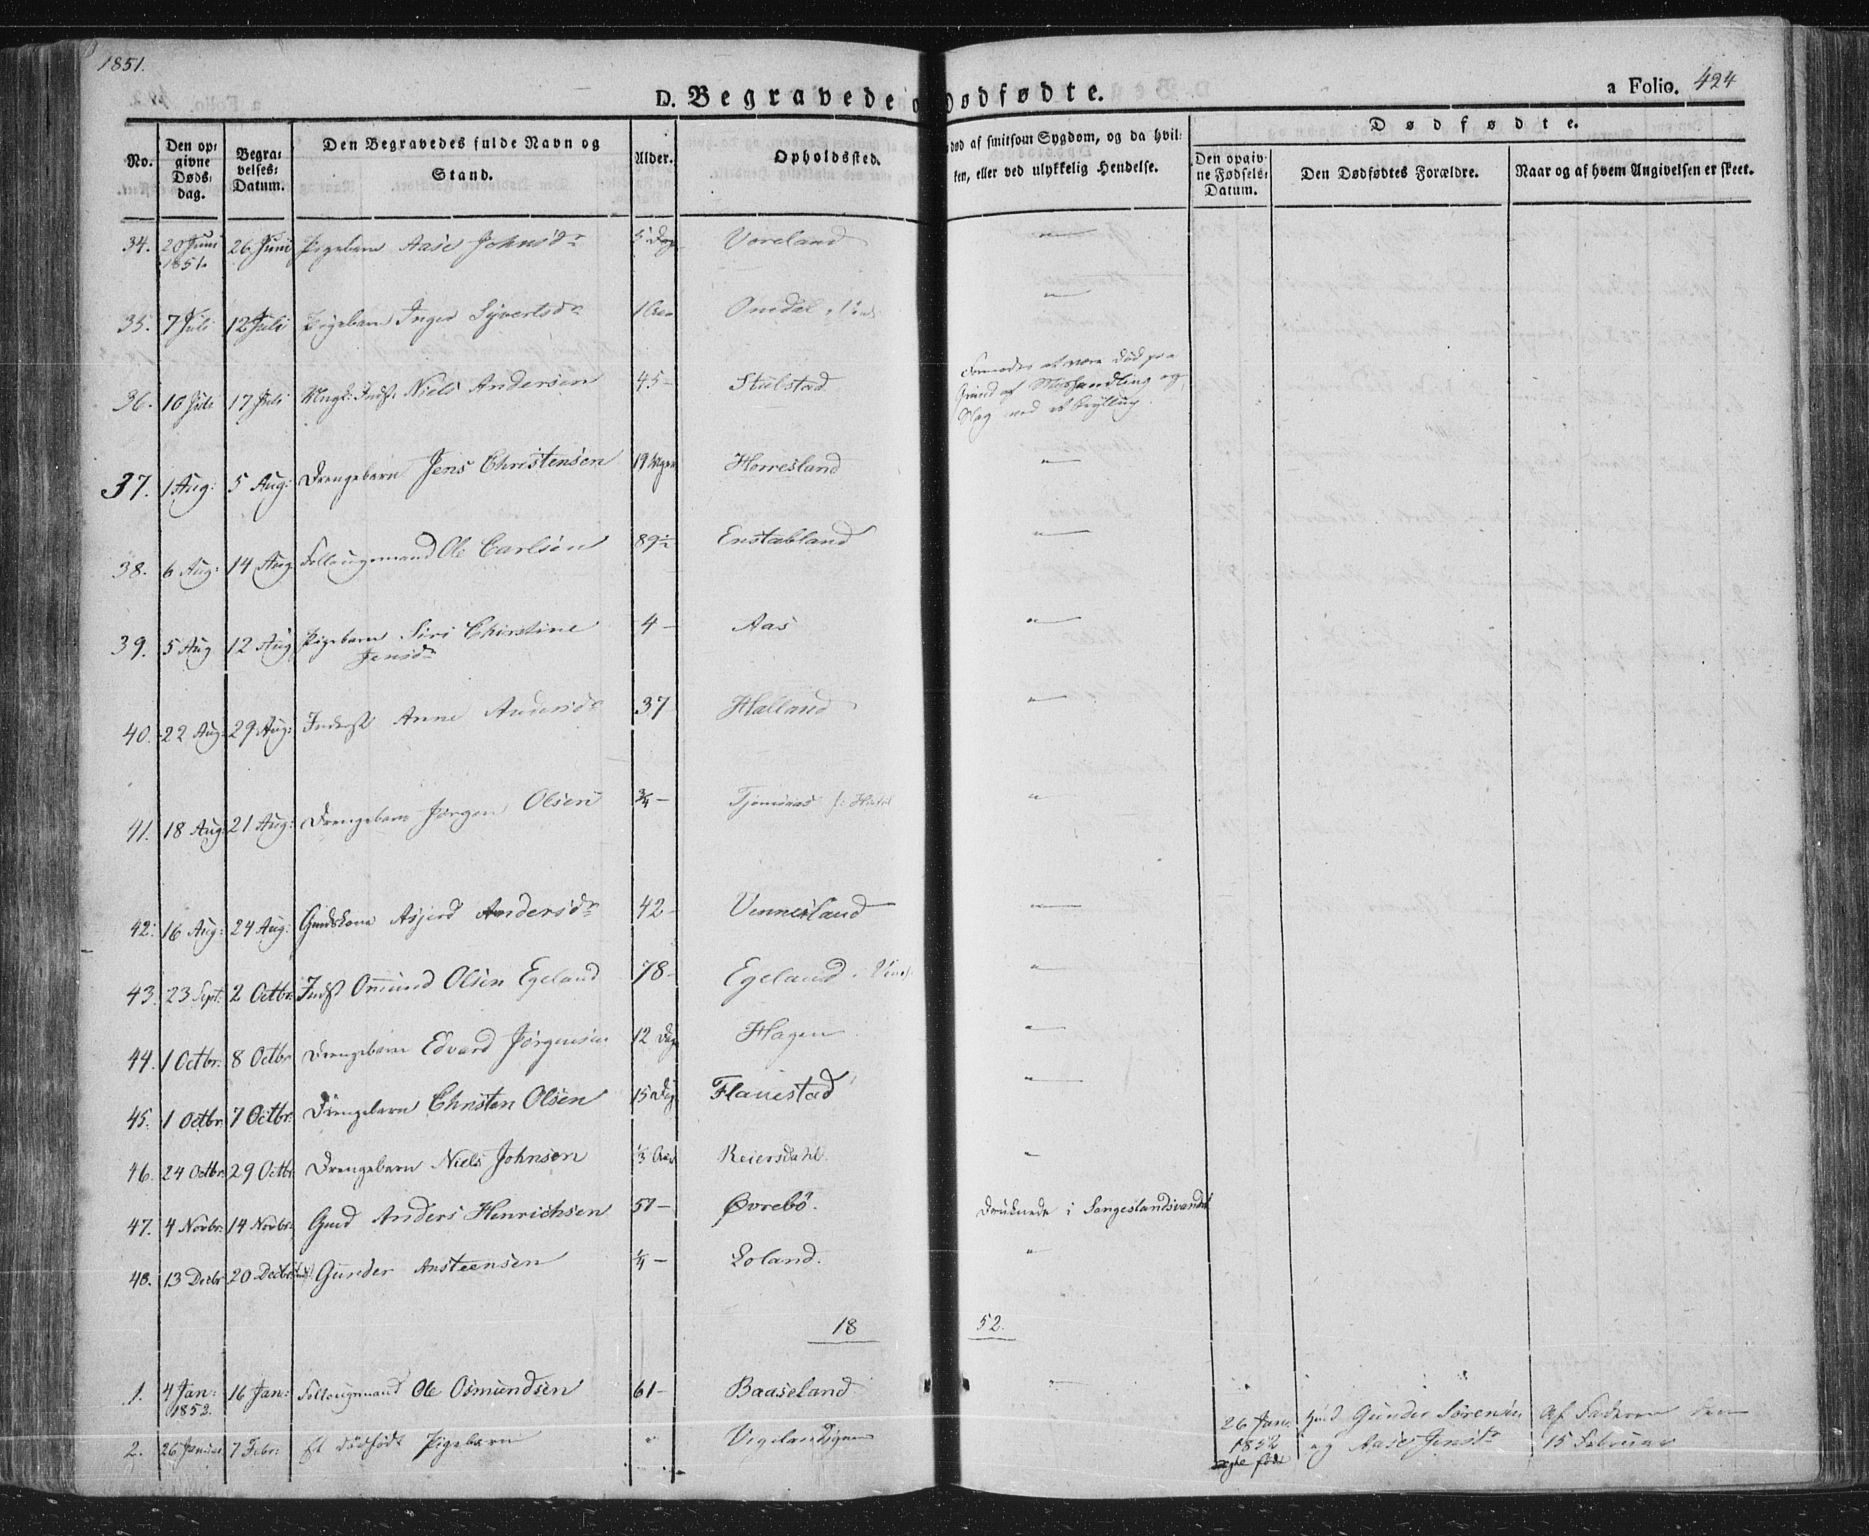 1851.
D. Begravede o Dødfødte.
a Folio. 424
No.
Den op: givne Døds: dag.
Begra: velses: Datum.
Den Begravedes fulde Navn og Stand.
Alder.
Opholdssted.
død af smitsom Sygdom, og da hvil: ken, eller ved ulykkelig Hendelse.
Dødfødte.
Den opgiv: ne Fødsels: Datum.
Den Dødfødtes Forældre.
Naar og af hvem Angivelsen er skeet.
34. 20 Juni 1851. 26 Juni Pigebarn Aase Johnsdr 5 Dag Voreland "
35. 7 Juli 12 Juli Pigebarn Inger Syvertsdr 1 Omdal "
36. 10 Juli 17 Juli Ungk: Indst. Niels Andersen 45 - Stulstad Formodes at være død paa Grund af Mishandling og Slag ved et
37. 1 Aug: 5 Aug: Drengebarn Jens Christensen 19 Horresland "
38. 6 Aug: 14 Aug Follaugsmand Ole Carlsen 89½ Enstabland "
39. 5 Aug 12 Aug Pigebarn Siri Christine Jensdr 4 - Aas "
40. 22 Aug: 29 Aug: Inderst Anne Andersdr 37 Halland "
41. 18 Aug 21 Aug: Drengebarn Jørgen Olsen ¾ - Tjomsaas "
42. 16 Aug: 24 Aug: Gmdskone Asjerd Andersdr 42 - Venneslaud "
43. 23 Sept. 2 Octbr. Indst Ommund Olsen Egeland 78 - Egeland "
44. 1 Octbr. 8 Octbr Drengebarn Edvard Jørgensen 12 Dage Hagen "
45. 1 Octbr. 7 Octbr. Drengebarn Christen Olsen 15 Dag Flanestad "
46. 24 Octbr. 29 Octbr. Drengebarn Niels Johnson ⅓ Reiersdahl. "
47. 4 Novbr. 14 Novbr. Gmd Anders Henrichsen 51 - Øvrebø. Druknede i Sangeslandsvandet
48. 13 Decbr 20 Decbr. Gunder Ansteensen ¼ - Loland. "
18 52.
1. 4 Jan: 1852. 16 Jan: Follaugsmand Ole Osmundsen 61 - Baaseland "
2. 26 Januar 7 Febr: Et dødfødt Pigebarn " 26 Jan: 1852 ægte født Gmd Gunder Sørensen og Aase Jensdr Af Faderen den 15 Februar